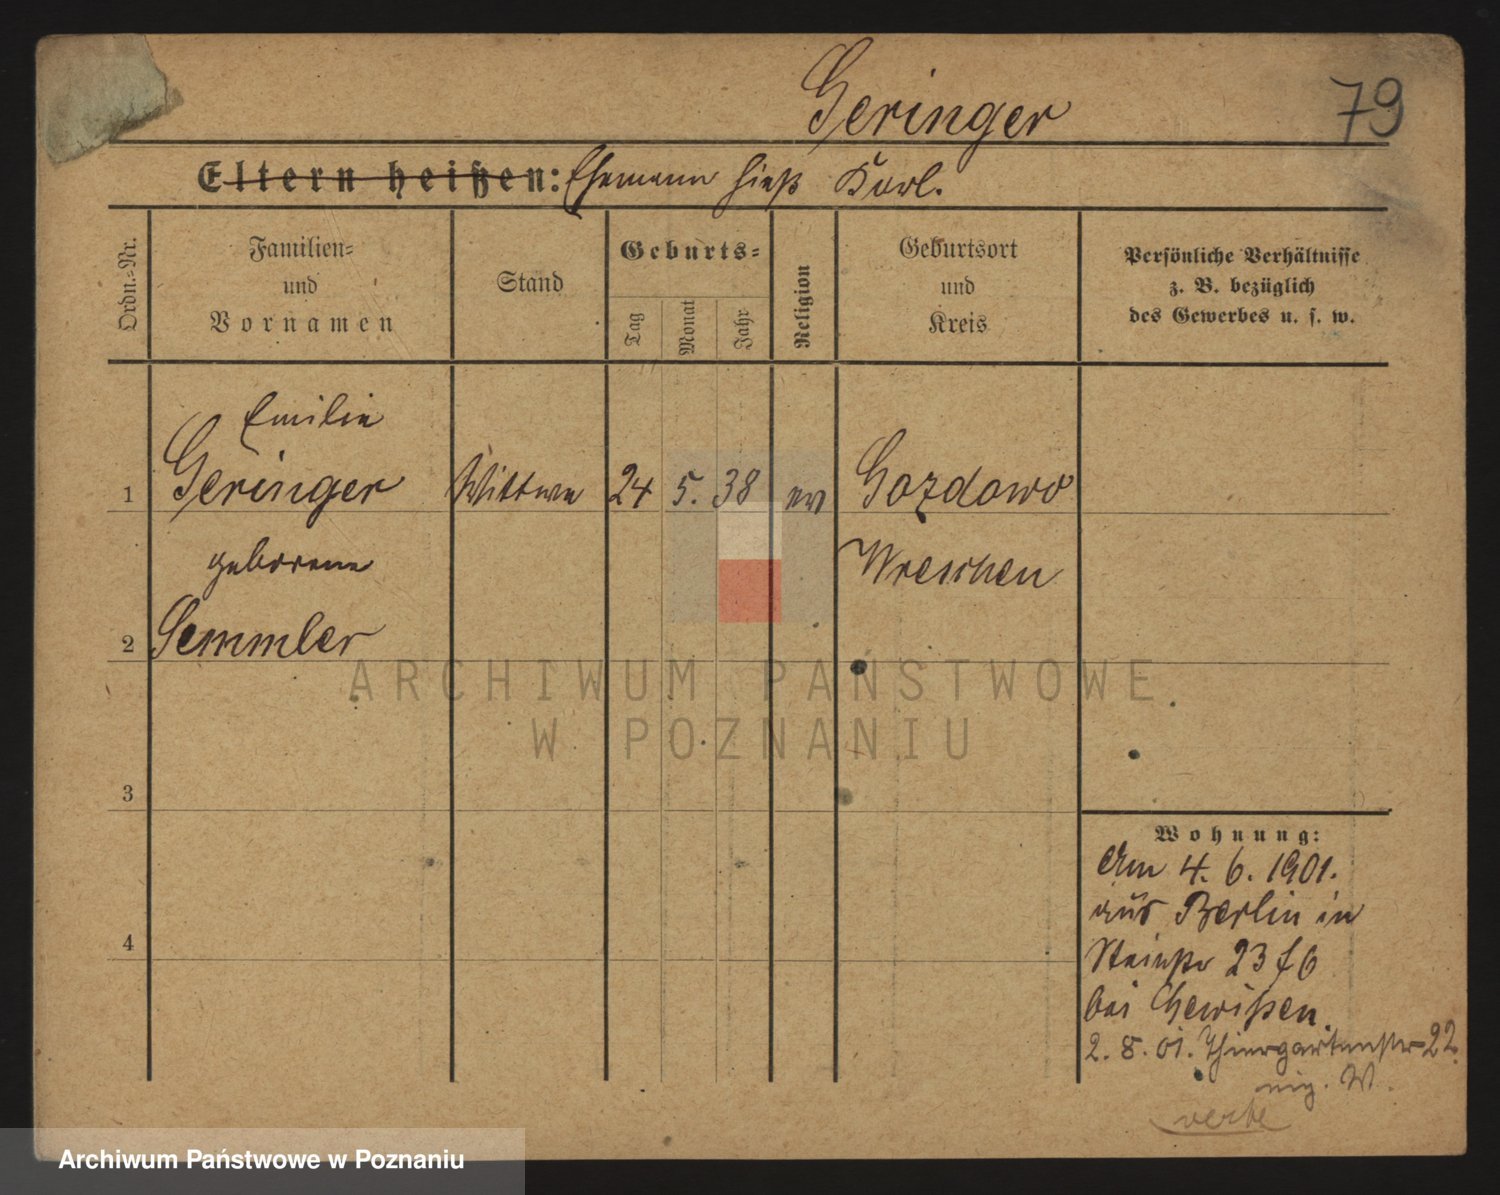 Geringer
79
Eltern heißen: Ehemann hieß Karl.
Ordn.-Nr.
Familien- und Vornamen
Stand
Geburts-
Tag
Monat
Jahr
Religion
Geburtsort und Kreis
Persönliche Verhältnisse
z. B. bezüglich
des Gewerbes u. s. w.
Emilie
1 Geringer Wittwe 24 5. 38 ev Gozdowo
geborene Wreschen
2 Semmler
ARCHIWUM PAŃSTWOWE
W POZNANIU
3
4
Wohnung:
Am 4. 6. 1901.
aus Berlin in
23
bei Gewißen.
2. 8. 01. Thiergartenstr 22.
eig. W.
Archiwum Państwowe w Poznaniu